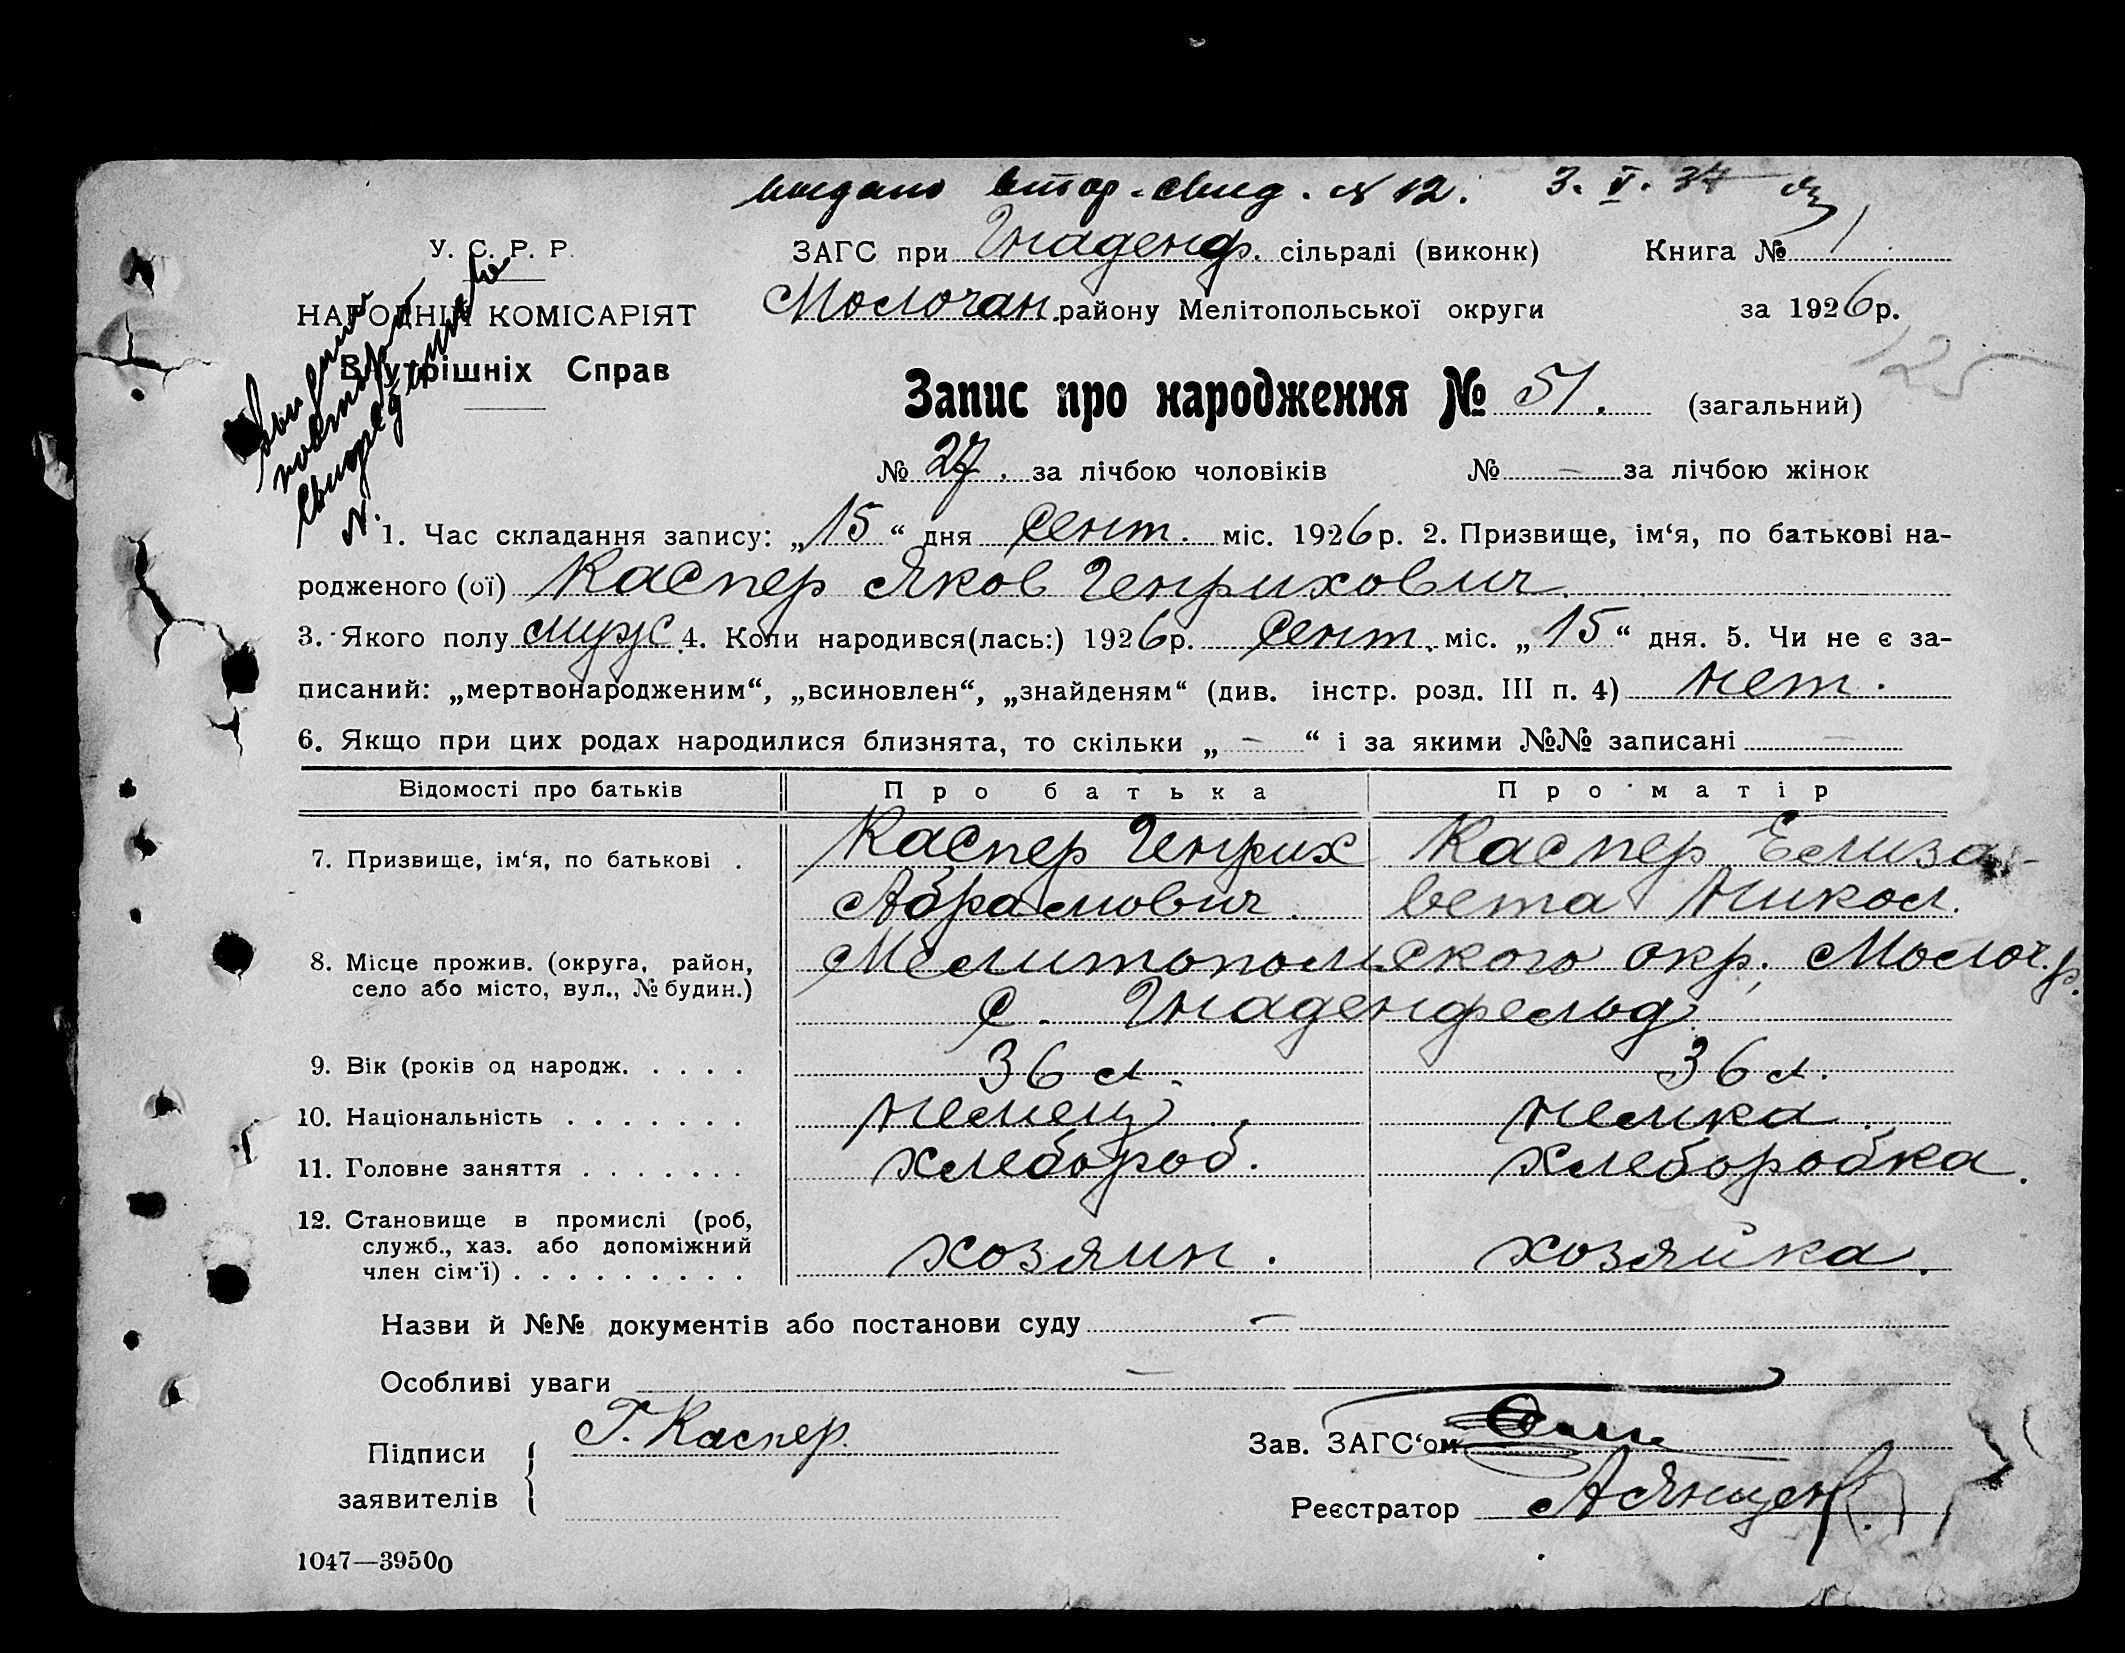 выдано втор. свид. № 12. 3. V. 37
У. С. Р. Р.
НАРОДНІЙ КОМІСАРІЯТ
Внутрішніх Справ
Выдано
повторно
свидетельство
№
ЗАГС при Гнаденф. сільраді (виконк) Книга № 1
Молочан. району Мелітопольської округи за 1926 р.
125
Запис про народження № 51. (загальний)
№ 27. за лічбою чоловіків № — за лічбою жінок
1. Час складання запису: „15“ дня сент. міс. 1926 р. 2. Призвище, ім‘я, по батькові на-
родженого (ої) Каспер Яков Генрихович.
3. Якого полу муж. 4. Коли народився(лась:) 1926 р. сент. міс. „15“ дня. 5. Чи не є за-
писаний: „мертвонародженим“, „всиновлен“, „знайденям“ (див. інстр. розд. III п. 4) нет.
6. Якщо при цих родах народилися близнята, то скільки „ – “ і за якими №№ записані —
Відомості про батьків Про батька Про матір
7. Призвище, ім‘я, по батькові . Каспер Генрих Каспер Елиза-
Абрамович. вета Никол.
8. Місце прожив. (округа, район, Мелитопольского окр., Молоч. р.
село або місто, вул., № будин.) с. Гнаденфельд
9. Вік (років од народж. . . . . 36 л. 36 л.
10. Національність . . . . . . . немец. немка.
11. Головне заняття . . . . . . . хлебороб. хлеборобка.
12. Становище в промислі (роб,
служб., хаз. або допоміжний хозяин. хозяйка.
член сім‘ї) . . . . . . . . .
Назви й №№ документів або постанови суду —
Особливі уваги —
Підписи Г. Каспер.
заявителів
Зав. ЗАГС‘ом
Реєстратор А Янцен
1047—39500